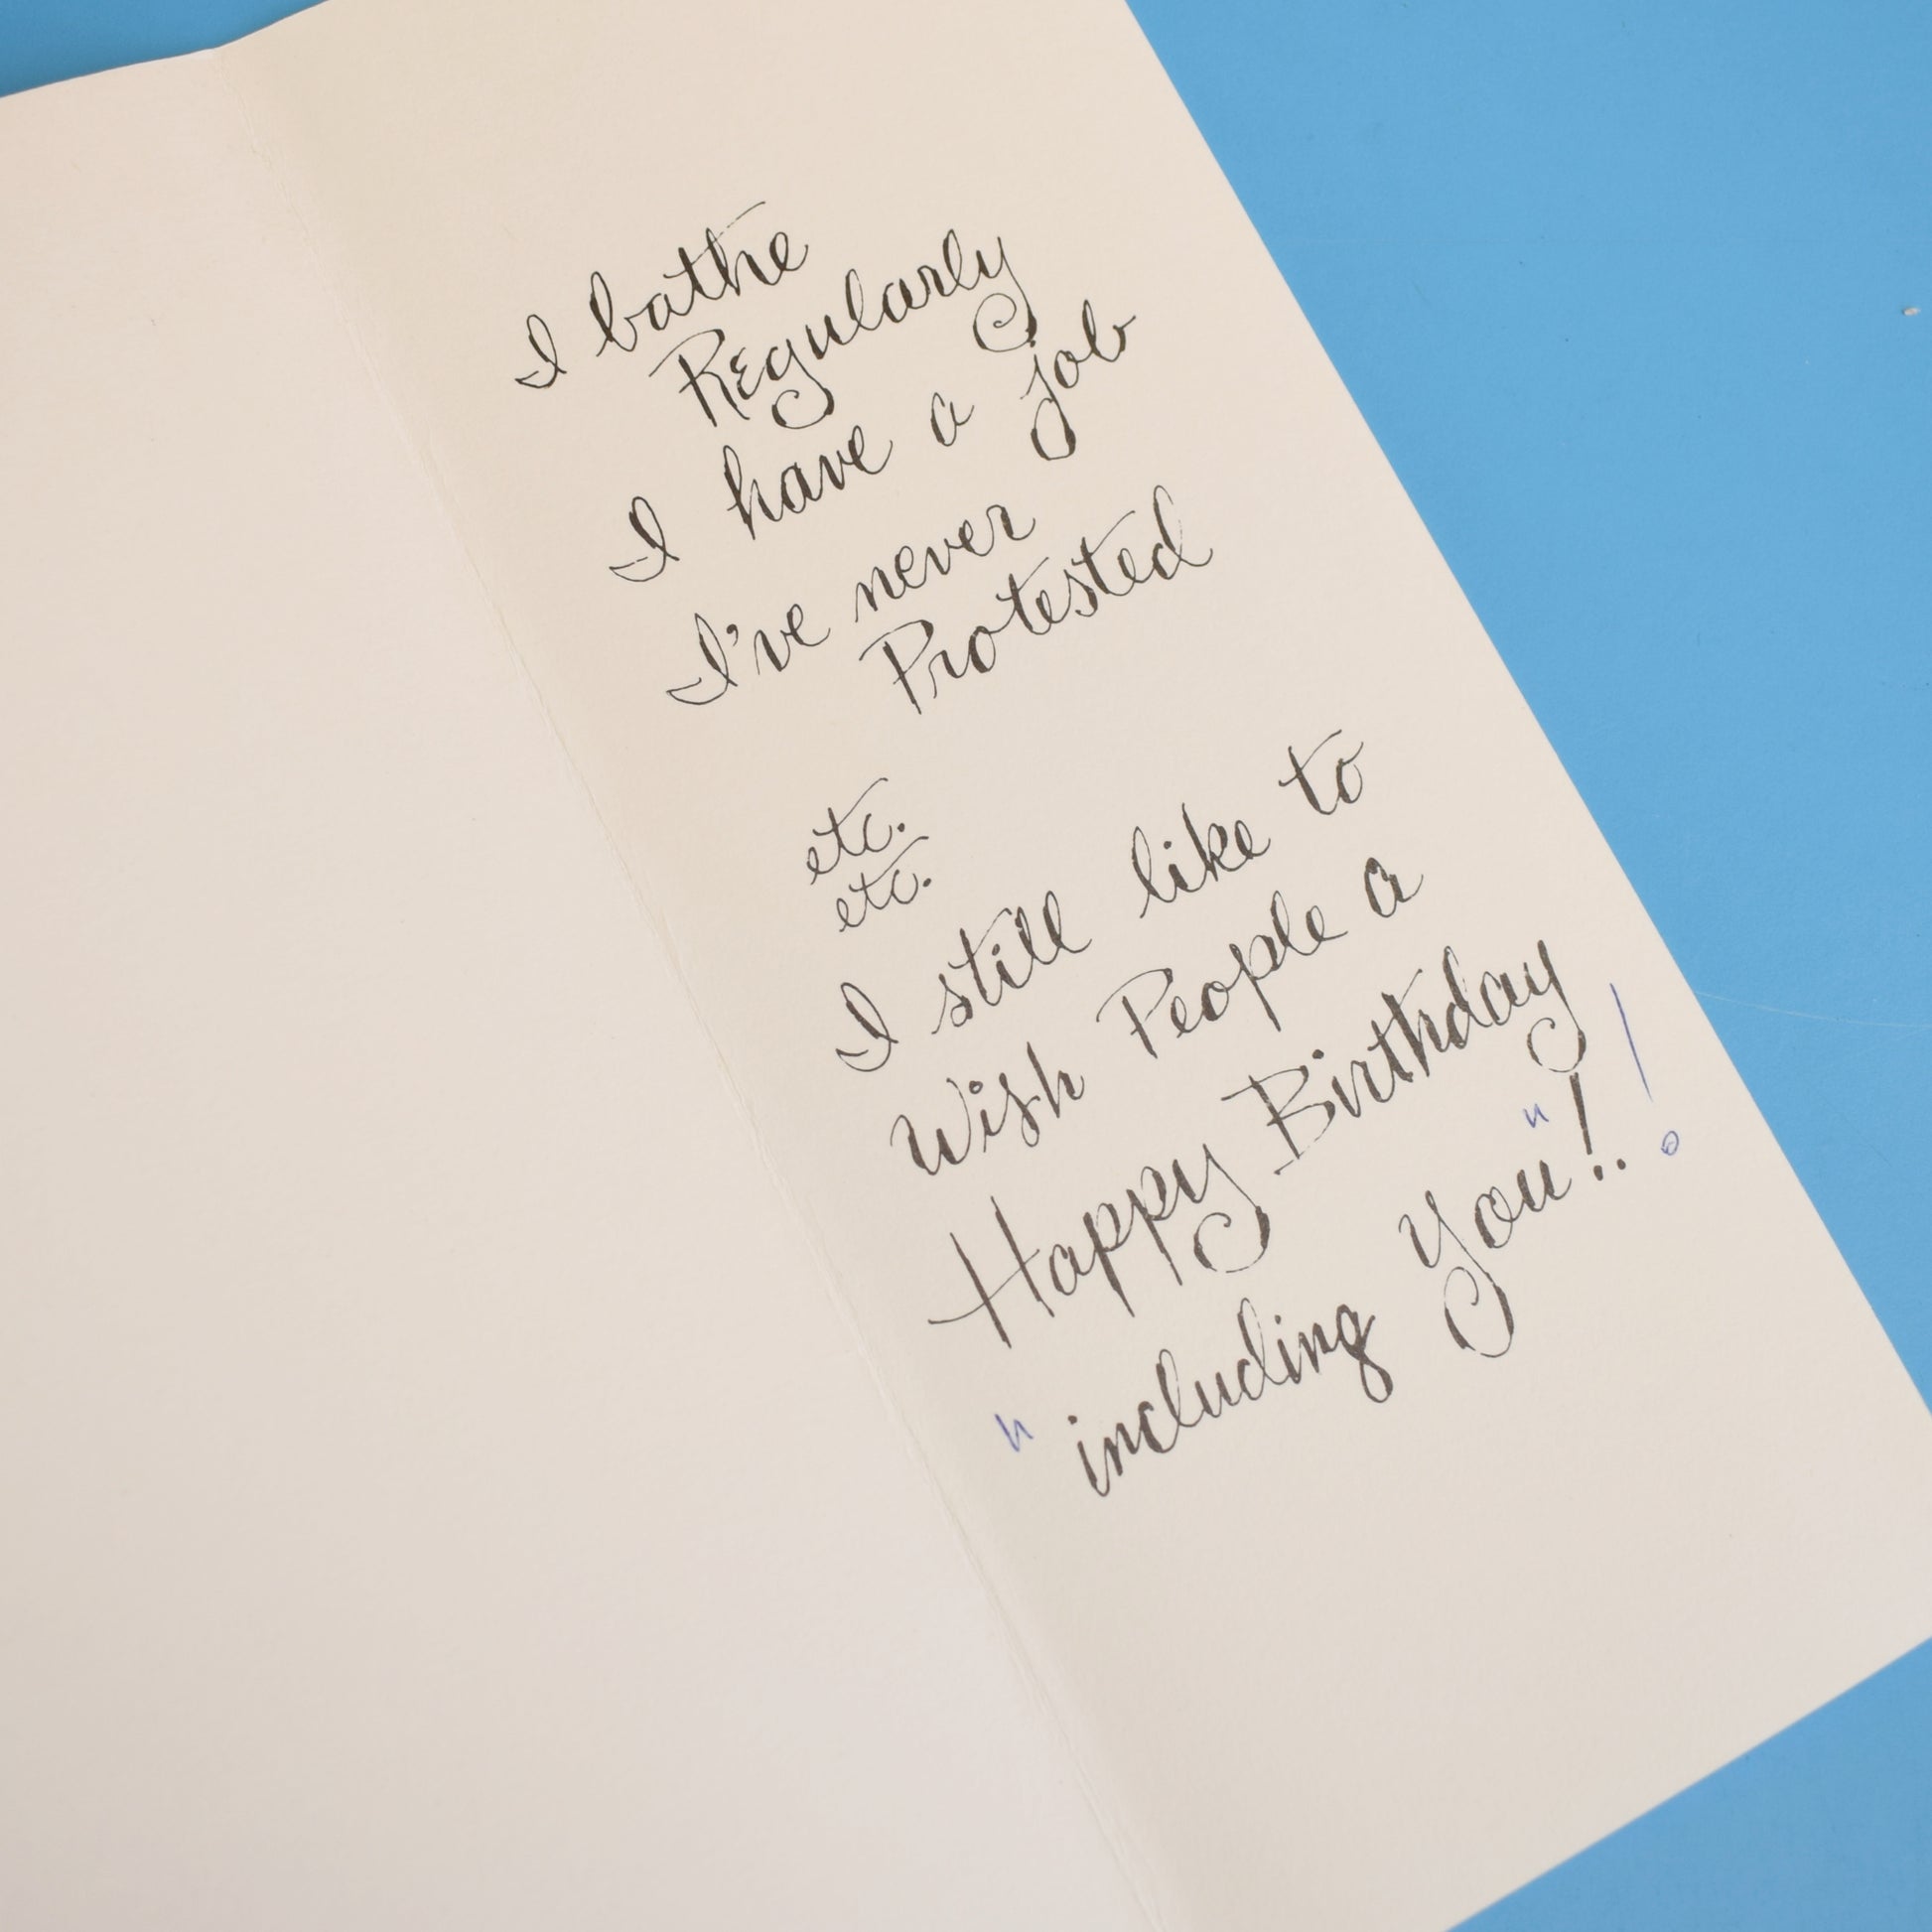 I bathe
Regularly
I have a job
I've never
Protested
etc.
etc.
I still like to
Wish People a
Happy Birthday
"including you"!..!